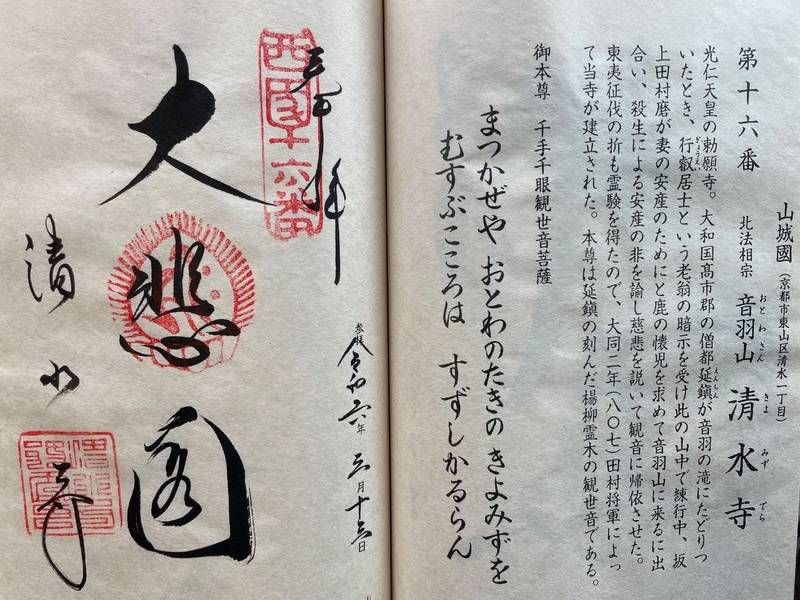 山城國(京都市東山区清水一丁目)
第十六番
北法相宗 音羽山 清水寺
おとわさん きよみずでら
光仁天皇の勅願寺。大和国髙市郡の僧都延鎮が音羽の滝にたどりつ
えんちん
いたとき、行叡居士という老翁の暗示を受け此の山中で練行中、坂
ぎょうえい
上田村磨が妻の安産のためにと鹿の懐児を求めて音羽山に来るに出
合い、殺生による安産の非を諭し慈悲を説いて観音に帰依させた。
東夷征伐の折も霊験を得たので、大同二年(八〇七)田村将軍によっ
て当寺が建立された。本尊は延鎮の刻んだ楊柳霊木の観世音である。
御本尊 千手千眼観世音菩薩
まつかぜや おとわのたきの きよみずを
むすぶこころは すずしかるらん
参拝 令和六年 三月十三日
奉拝
西国十六番
大悲閣
清水寺